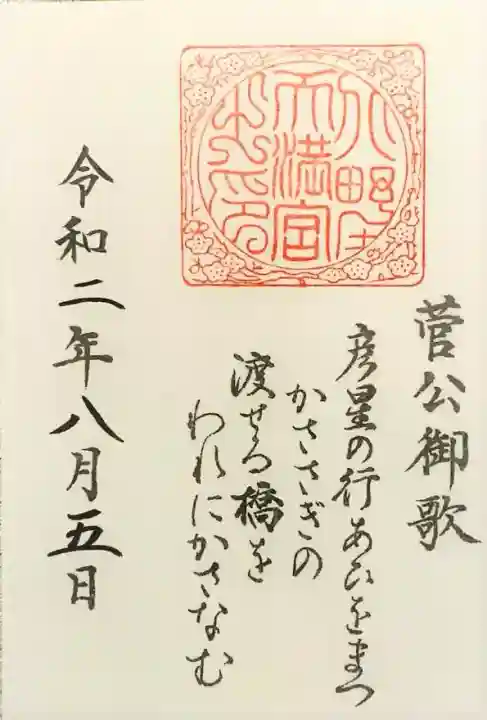 菅公御歌
彦星の行あひをまつ
かささぎの
渡せる橋を
われにかさなむ
令和二年八月五日